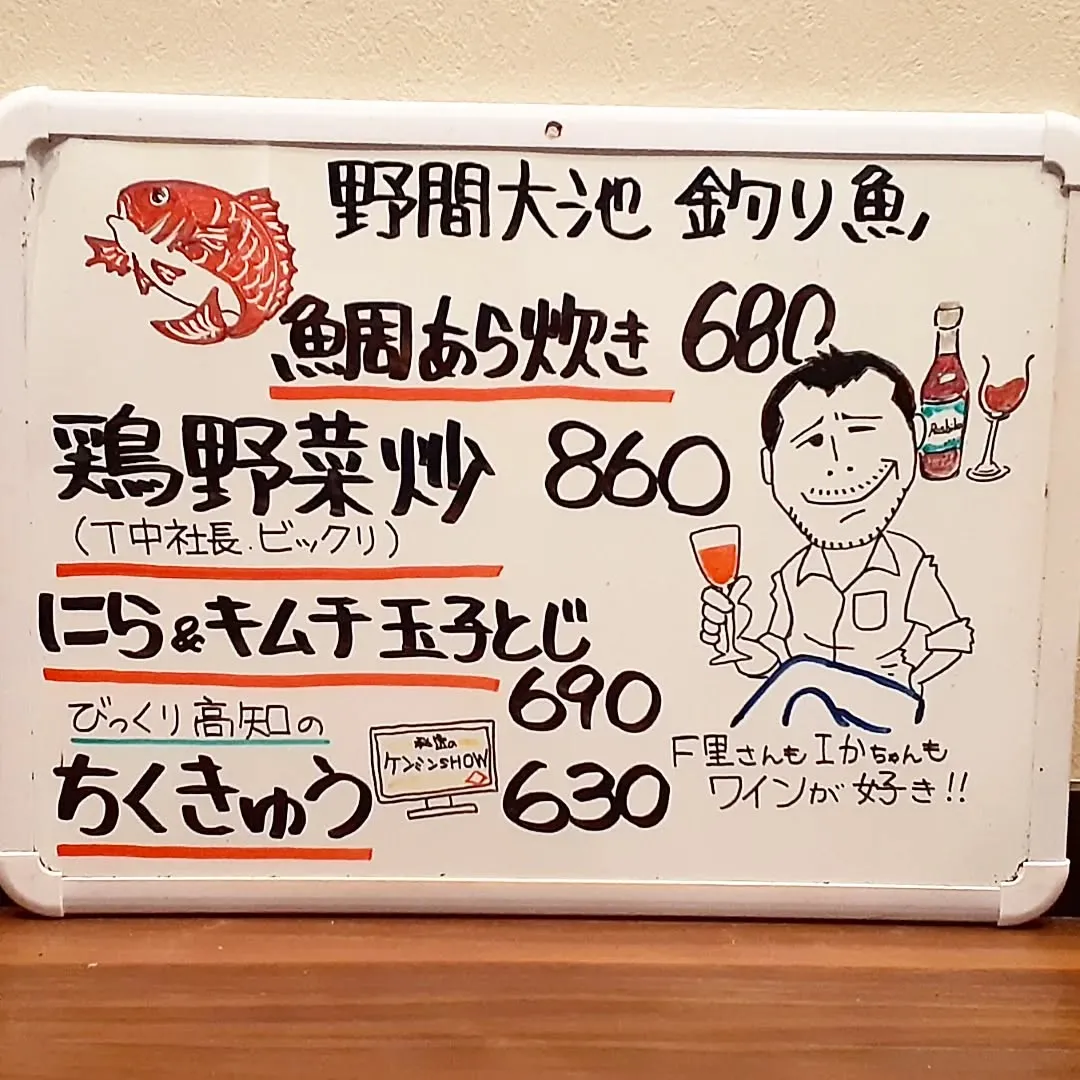 野間大池 釣り魚
鯛あら炊き 680
鶏野菜炒 860
(T中社長.ビックリ)
にら&キムチ玉子とじ
690
びっくり高知の
ちくきゅう 630
ケンミンSHOW
F里さんもIかちゃんも
ワインが好き!!